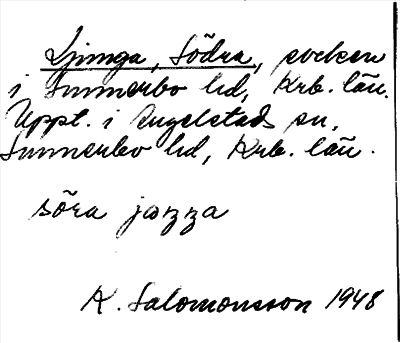 Ljunga, Södra, socken
i Sunnerbo hd, Krb. län.
Uppt. i Angelstads sn,
Sunnerbo hd, Krb. län.
söra jaɳɳa
K. Salomonsson 1948